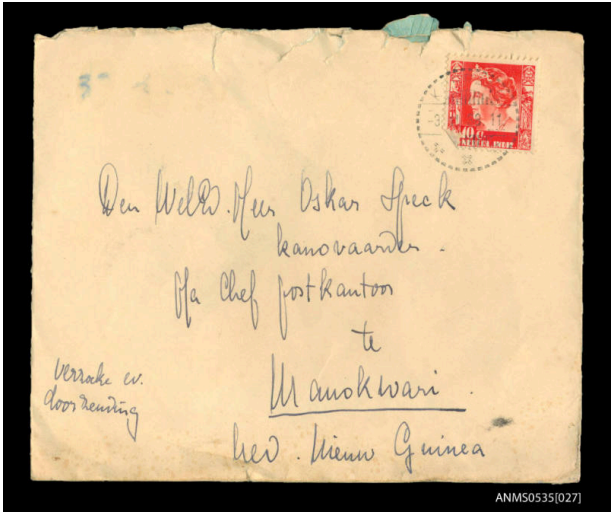 10 c.
NEDERL. INDIE
Den WelEd. Heer Oskar Speck
kanovaarder.
p/a Chef postkantoor
te
Manokwari.
Ned. Nieuw Guinea
Verzoeke ev.
doorzending
ANMS0535[027]